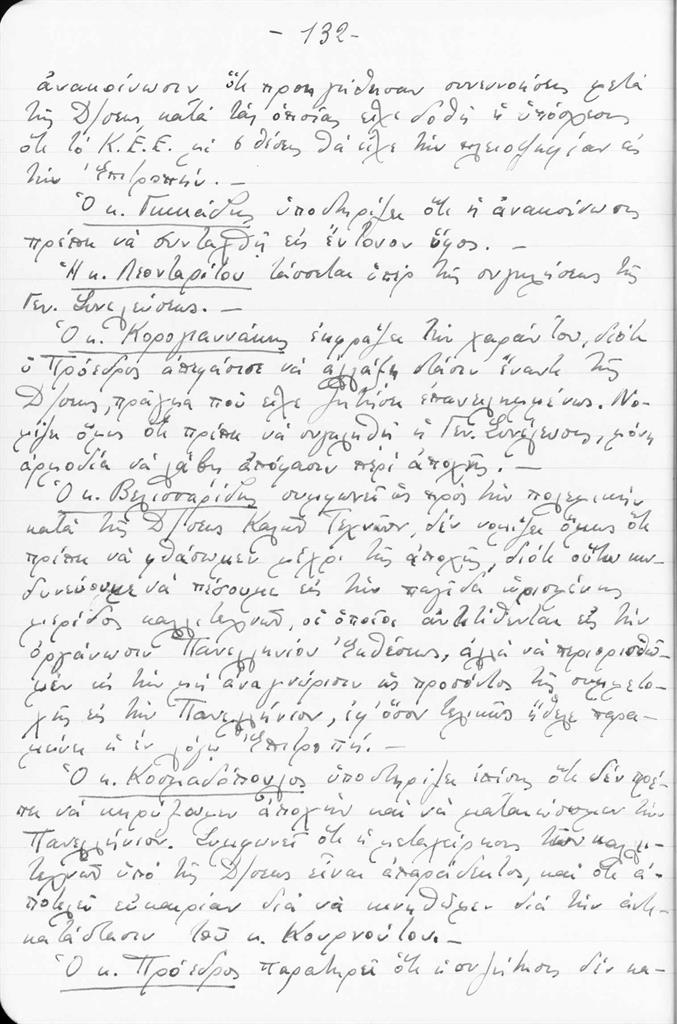 - 132 -
ἀνακοίνωσιν ὅτι προηγήθησαν συνεννοήσεις μετὰ
τῆς Δ/σεως κατὰ τὰς ὁποίας εἶχε δοθῆ ἡ ὑπόσχεσις
ὅτι τὸ Κ.Ε.Ε. μὲ 6 θέσεις θὰ εἶχε τὴν πλειοψηφίαν εἰς
τὴν Ἐπιτροπήν. -
Ὁ κ. ὑποστηρίζει ὅτι ἡ ἀνακοίνωσις
πρέπει νὰ συνταχθῆ εἰς ἔντονον ὕφος. -
Ἡ κ. Λεονταρίτου τάσσεται ὑπὲρ τῆς συγκλήσεως τῆς
Γεν. Συνελεύσεως. -
Ὁ κ. Κορογιαννάκης ἐκφράζει τὴν χαράν του, διότι
ὁ Πρόεδρος ἀπεφάσισε νὰ ἀλλάξη στάσιν ἔναντι τῆς
Δ/σεως, πρᾶγμα ποὺ εἶχε ζητήσει ἐπανειλημμένως. Νο-
μίζει ὅμως ὅτι πρέπει νὰ συγκληθῆ ἡ Γεν. Συνέλευσις, μόνη
ἁρμοδία νὰ λάβη ἀπόφασιν περὶ ἀποχῆς. -
Ὁ κ. Βελισσαρίδης συμφωνεῖ ὡς πρὸς τὴν πολεμικὴν
κατὰ τῆς Δ/σεως Καλῶν Τεχνῶν, δὲν νομίζει ὅμως ὅτι
πρέπει νὰ φθάσωμεν μέχρι τῆς ἀποχῆς, διότι οὕτω κιν-
δυνεύουμε νὰ πέσουμε εἰς τὴν παγίδα ὡρισμένης
μερίδος καλλιτεχνῶν, οἱ ὁποῖοι ἀντιτίθενται εἰς τὴν
ὀργάνωσιν Πανελληνίου Ἐκθέσεως, ἀλλὰ νὰ περιορισθῶ-
μεν εἰς τὴν μὴ ἀναγνώρισιν ὡς προσόντος τῆς συμμετο-
χῆς εἰς τὴν Πανελλήνιον, ἐφ' ὅσον τελικῶς ἤθελε παρα-
μείνει ἡ ἐν λόγῳ Ἐπιτροπή. -
Ὁ κ. Κοσμαδόπουλος ὑποστηρίζει ἐπίσης ὅτι δὲν πρέ-
πει νὰ κηρύξωμεν ἀποχὴν καὶ νὰ ματαιώσωμεν τὴν
Πανελλήνιον. Συμφωνεῖ ὅτι ἡ μεταχείρησις τῶν καλλι-
τεχνῶν ὑπὸ τῆς Δ/σεως εἶναι ἀπαράδεκτος, καὶ ὅτι ἀ-
ποτελεῖ εὐκαιρίαν διὰ νὰ κινηθῶμεν διὰ τὴν ἀντι-
κατάστασιν τοῦ κ. Κουρνούτου. -
Ὁ κ. Πρόεδρος παρατηρεῖ ὅτι ἡ συζήτησις δὲν κα-